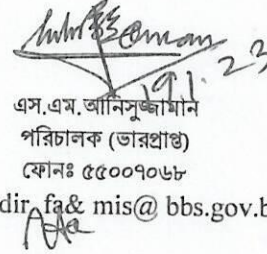 19.1.23
এস.এম.আনিসুজ্জামান
পরিচালক (ভারপ্রাপ্ত)
ফোনঃ ৫৫০০৭০৬৮
dir_fa& mis@ bbs.gov.b